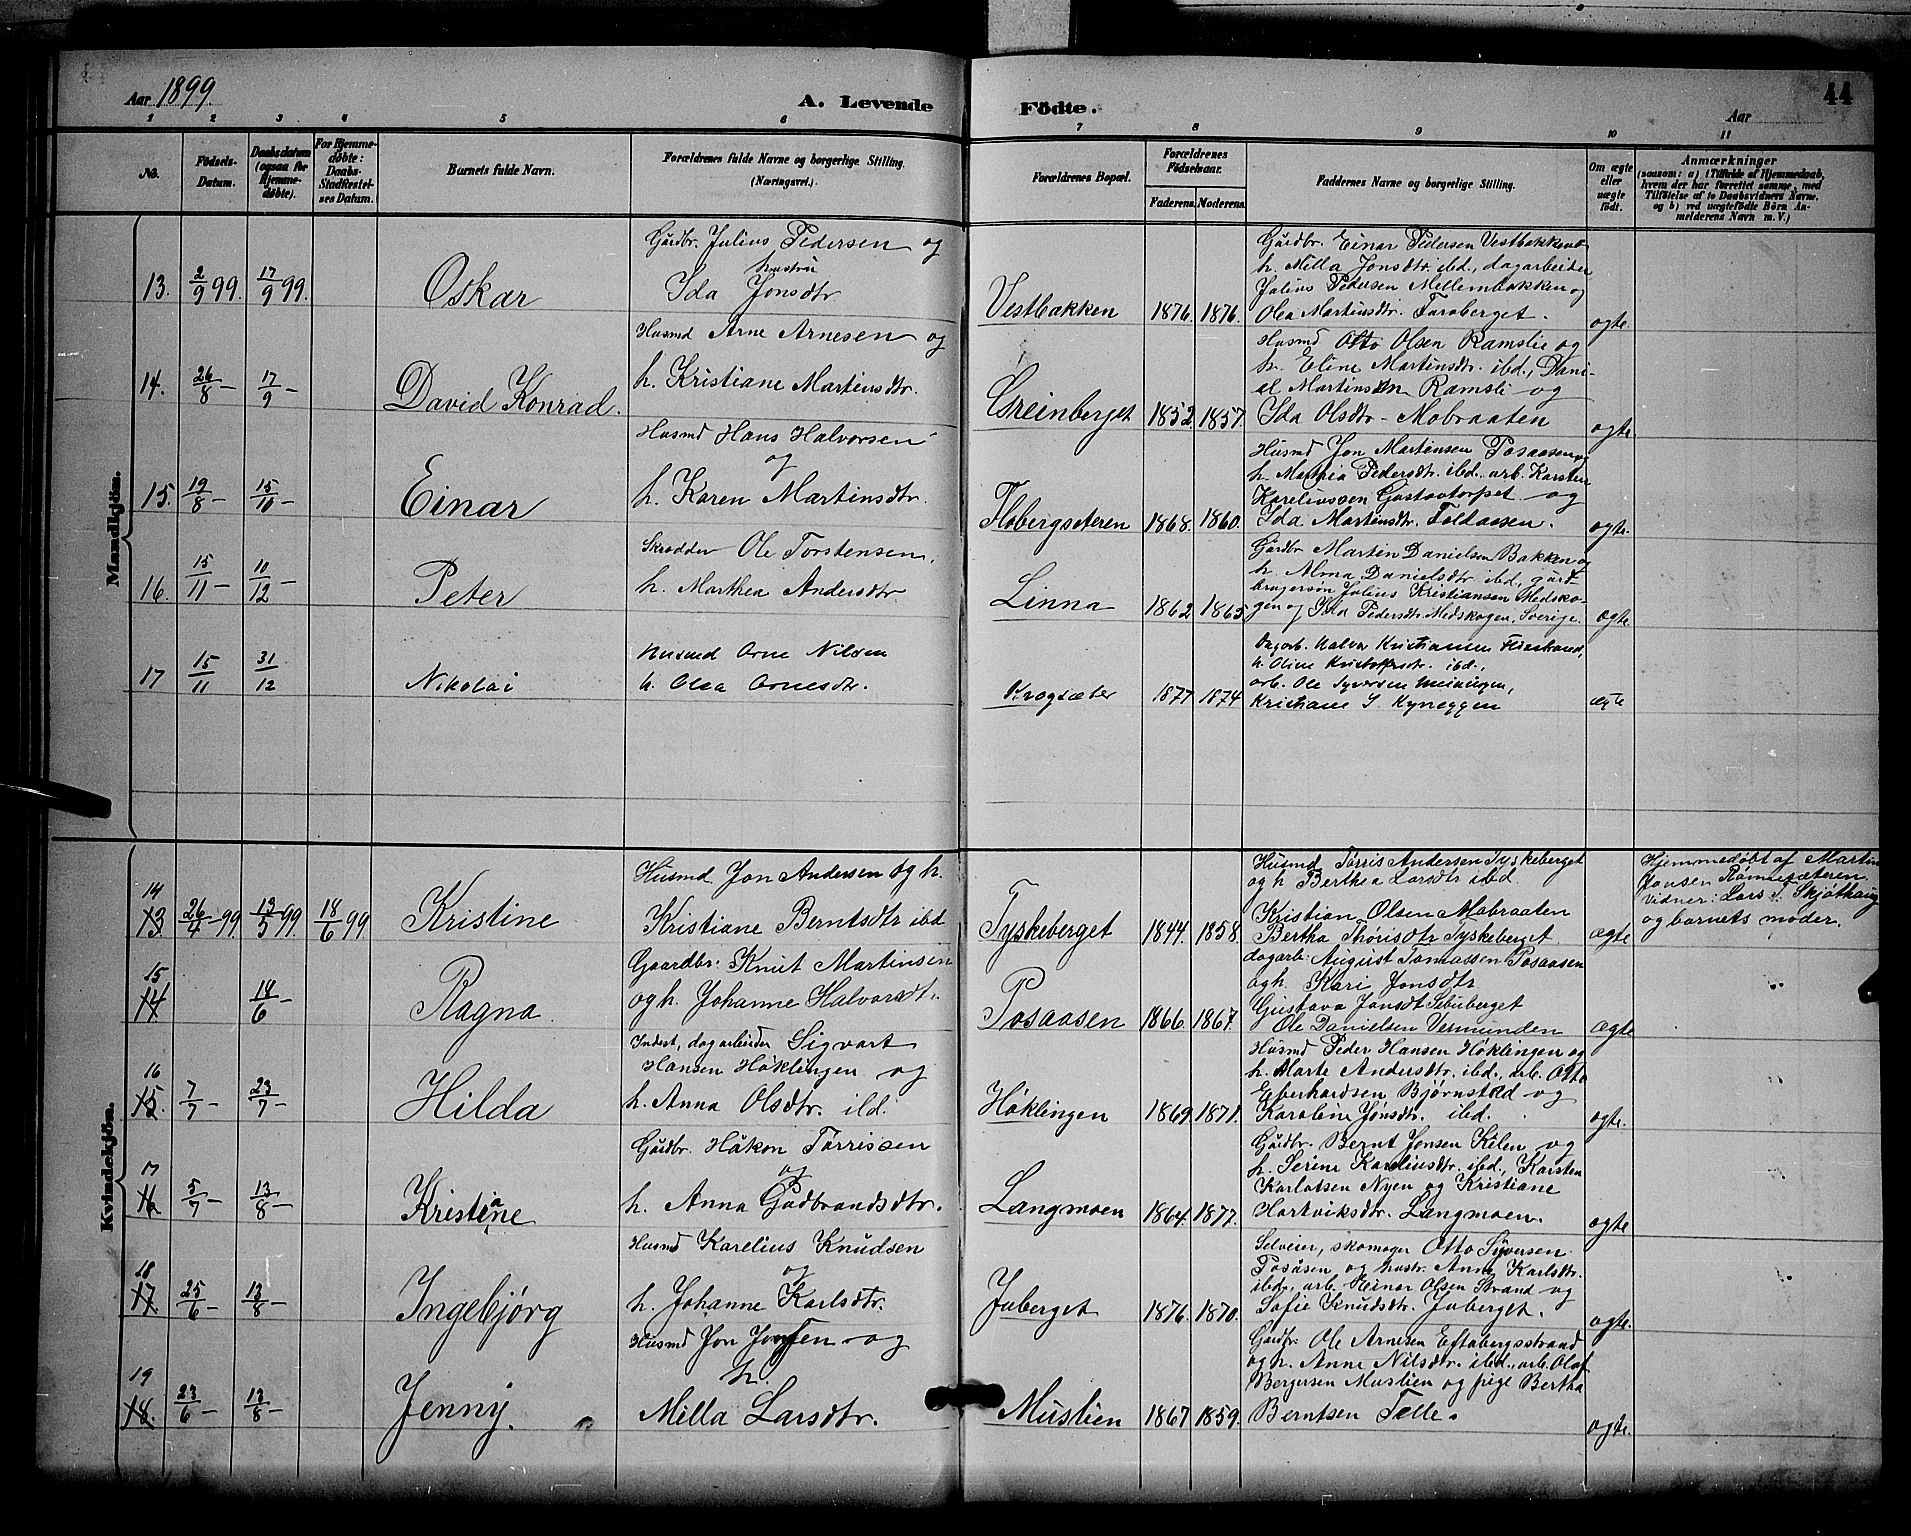 Aar 1899. A. Levende Födte. Aar 44
1 2 3 4 5 6 7 8 9 10 11
No. Födsels-Datum. Daabsdatum (ogsaa for Hjemmedøbte). For Hjemmedøbte: Daabs-Stadfæstelses Datum. Barnets fulde Navn. Forældrenes fulde Navne og borgerlige Stilling. (Næringsvei.) Forældrenes Bopæl. Forældrenes Födselsaar. Faderens. Moderens. Faddernes Navne og borgerlige Stilling. Om ægte eller uægte födt. Anmærkninger (saasom: a) i Tilfælde af Hjemmedaab, hvem der har forrettet samme, med Tilföielse af to Daabsvidners Navne, og b) ved uægtefödte Börn Anmelderens Navn m. V.)
Mandkjön.
13. 2/9 99. 17/9 99. Oskar
Gårdbr. Julius Pedersen og
hustru
Ida Jonsdtr
Vestbakken 1876. 1876.
Gårdbr. Einar Pedersen Vestbakken
h. Milla Jonsdtr. ibd., dagarbeider
Julius Pedersen Mellembakken og
Olea Martinsdtr. Faroberget.
ægte
14. 26/8 – 17/9 – David Konrad.
Husmd Arne Arnesen og
h. Kristiane Martinsdtr.
Greinberget 1852. 1857.
Husmd Otto Olsen Ramslie og
h. Eline Martinsdtr. ibd., Dani-
el Martinsen Ramsli og
Ida Olsdtr – Mobraaten
ægte
15. 19/8 – 15/10 – Einar
Husmd Hans Halvorsen
og
h. Karen Martinsdtr.
Flobergseteren 1868. 1860.
Husmd Jon Martensen Posaasen og
h. Mathea Pedersdtr. ibd. arb. Karsten
Kareliussen Gustavtorpet og
Ida Martinsdtr. Foldaasen.
ægte.
16. 15/11 – 10/12 – Peter
Skrædder Ole Torstensen,
h. Marthea Andersdtr
Linna 1862 1865
Gårdbr Martin Danielsen Bakken og
h. Alma Danielsdtr ibd, gård-
brugersøn Julius Kristiansen Medsko-
gen og Ida Pedersdtr. Medskogen, Sverige.
ægte
17 15/11 31/12 Nikolai
Husmd Arne Nilsen
h. Olea Arnesdtr.
Krogsæter 1877 1874
Dagarb. Halvor Kristiansen
h. Oline Kristoffersdtr. ibd.,
arb. Ole Syversen
Kristiane Kyneggen
ægte
Kvindekjön.
14
13 26/4 99 13/5 99. 18/6 99 Kristine
Husmd Jon Andersen og h.
Kristiane Berntsdtr ibd
Tyskeberget 1844. 1858.
Husmd Tørris Andersen Tyskeberget
og h Berthea Larsdtr ibd.
Kristian Olsen Mobraaten
Bertha Thørisdtr Tyskeberget
ægte
Hjemmedøbt af Martin
Jonsen Rømmesæteren
Vidner: Lars Skjøthaug
og barnets moder.
15
14 18/6 – Ragna
Gaardbr: Knut Martinsen
og h. Johanne Halvorsdtr.
Posaasen 1866. 1867.
dagarb: August Tomassen Posaasen
og h. Kari Jonsdtr
Gustava Jonsdt Sebuberget
Ole Danielsen Vermunden
Ægte
16
15. 7/7 – 23/7 – Hilda
Inderst, dagarbeider Sigvart
Hansen Höklingen og
h. Anna Olsdtr. ibd.
Höklingen 1869 1871.
Husmd Peder Hansen Höklingen og
h. Marte Andersdtr. ibd., arb. Otto
Eberhardsen Bjørnstad og
Karoline Jonsdtr. ibd.
ægte.
17
16 5/7 – 13/8 – Kristine a
Gårdbr. Håkon Tørrissen
og
h. Anna Gudbrandsdtr.
Langmoen 1864. 1877.
Gårdbr. Bernt Jonsen Kilen og
h. Serine Kareliusdtr. ibd., Karsten
Karlotsen Nyen og Kristiane
Hartviksdtr. Langmoen.
ægte
18
17 25/6 – 13/8 – Ingebjørg
Husmd Karelius Knudsen
og
h. Johanne Karlsdtr.
Juberget 1876. 1870.
Selveier, skomager Otto Syversen
Posåsen og hustr. Anne Karlsdtr.
ibd., arb. Einar Olsen Strand og
Sofie Knudsdtr. Juberget.
ægte.
19
18. 23/6 – 13/8 – Jenny.
Husmd Jon Jonsen og
h.
Milla Larsdtr.
Muslien 1867 1859.
Gårdbr: Ole Arnesen Eftabergsstrand
og h. Anne Nilsdtr. ibd., arb. Olaf
Bergersen Muslien og pige Bertha
Berntsen Felle.
ægte.